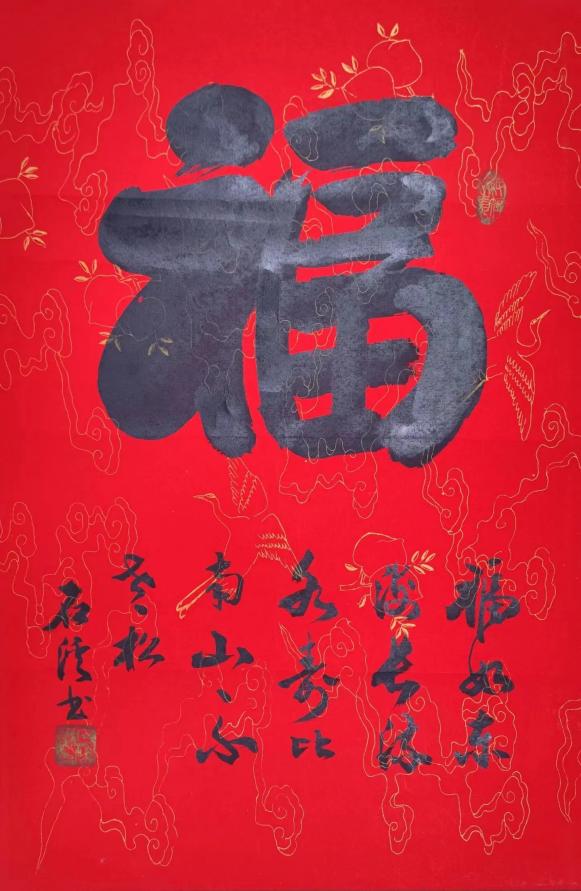 福
福如东
海长流
水寿比
南山不
老松
石书